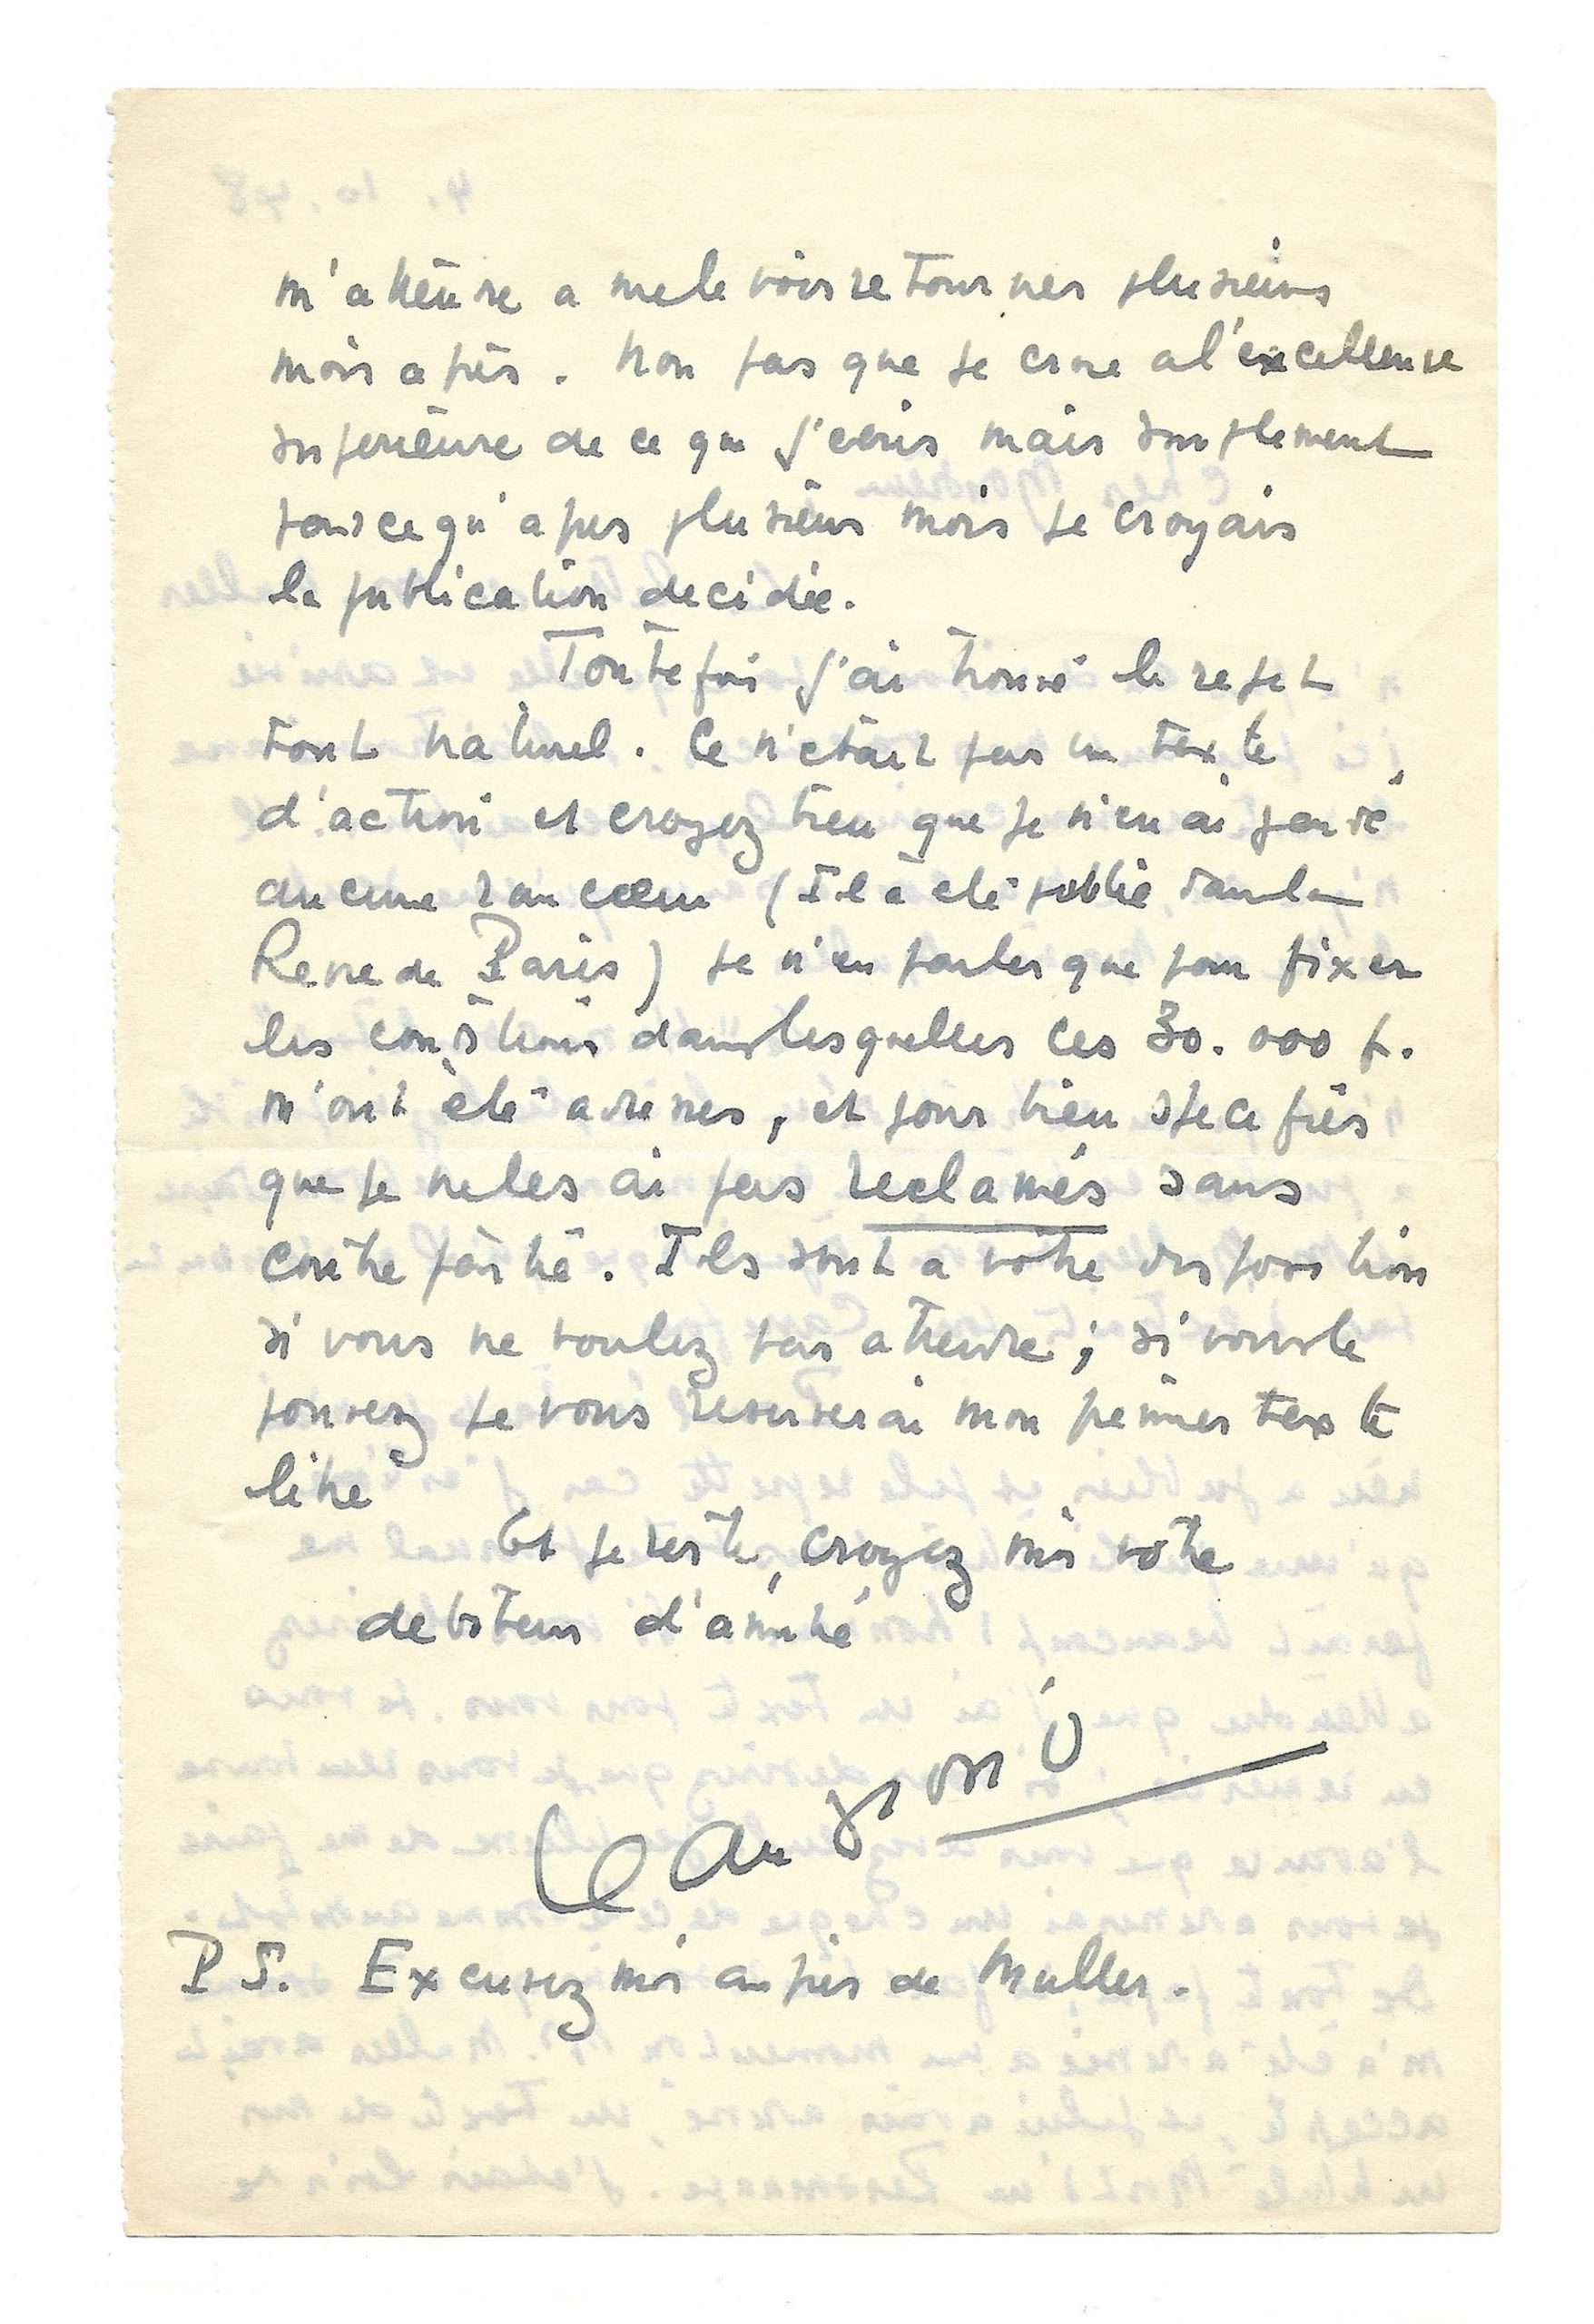 m'attendre a me le voir retourner plusieurs
mois après. Non pas que je croie a l'excellence
superieure de ce que j'écris mais simplement
parce qu'apres plusieurs mois je croyais
la publication decidée.
Toutefois j'ai trouvé le rejet
tout naturel. Ce n'etait pas un texte
d'action et croyez bien que je n'en ai gardé
aucune rancœur (Il a été publié dans la
Revue de Paris) je n'en parler que pour fixer
les conditions dans lesquelles ces 30.000 f.
m'ont été avancés, et pour bien specifier
que je ne les ai pas reclamés sans
contre partie. Ils sont a votre disposition
si vous ne voulez pas attendre ; si vous le
pouvez je vous reserverai mon premier texte
libre
Et je reste, croyez moi votre
debiteur d'amitié
Jean Giono
P S. Excusez moi auprès de Muller.